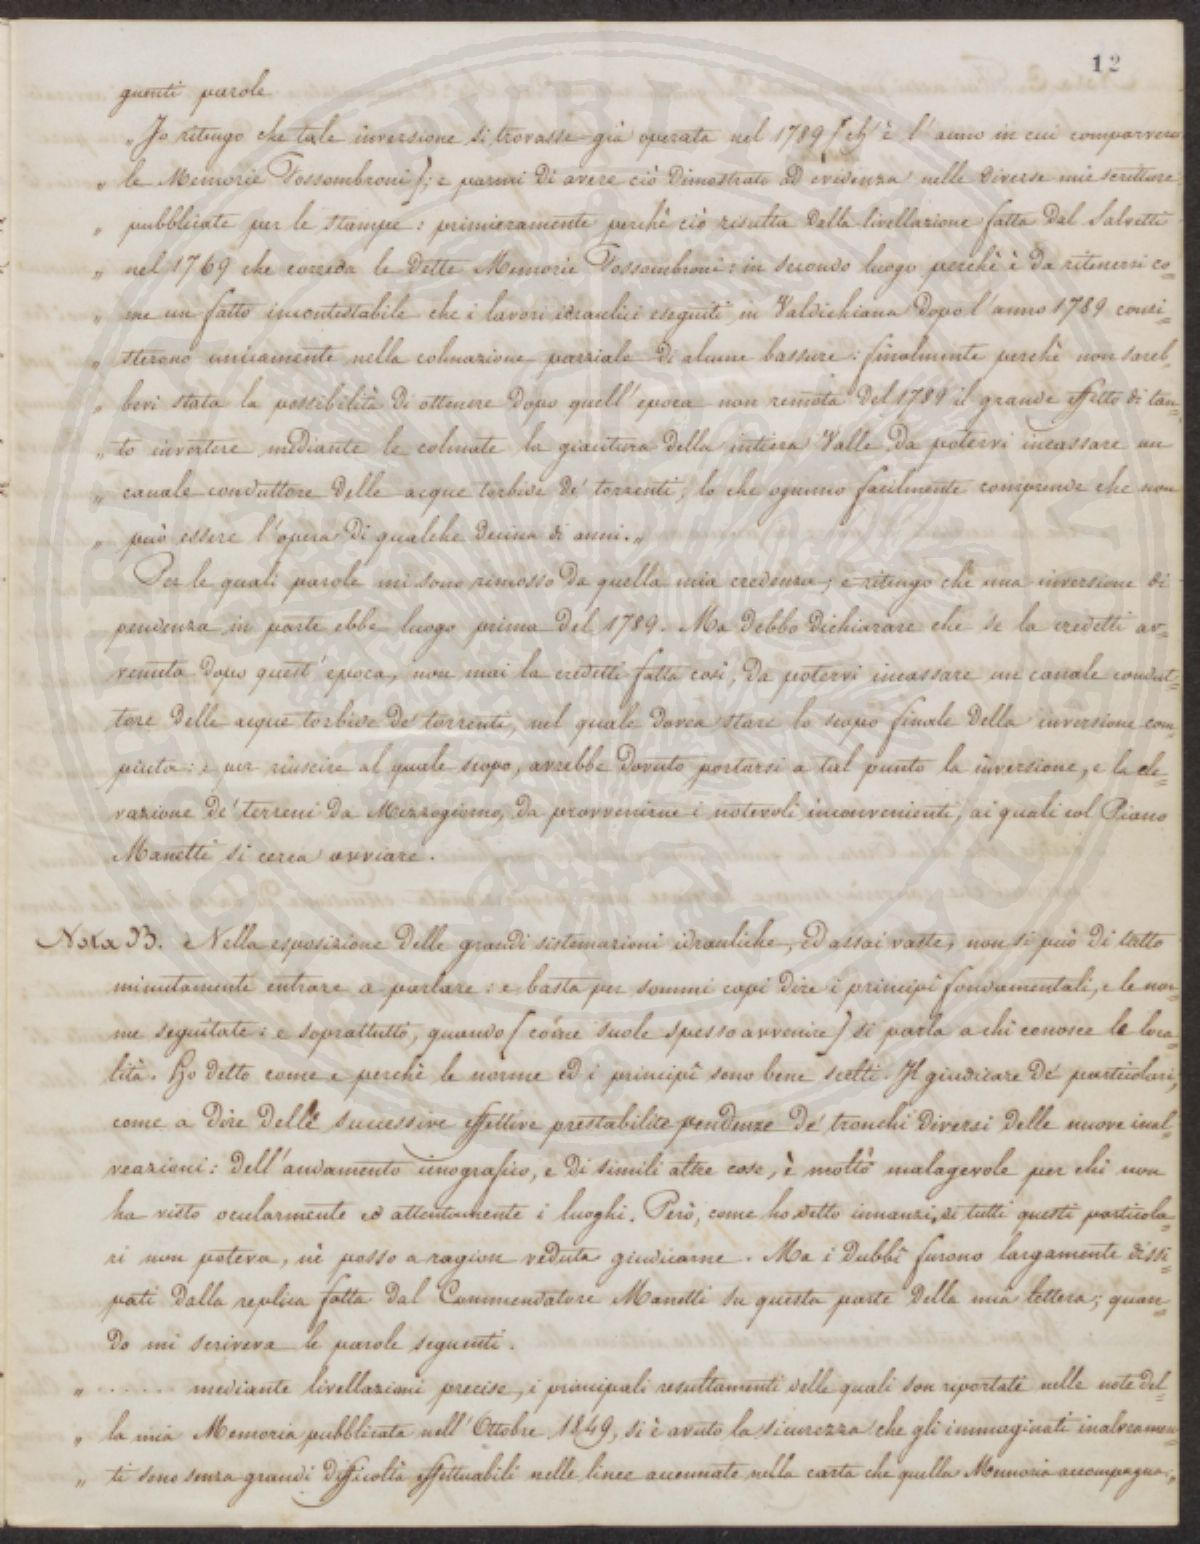 12
guenti parole
„ Jo ritengo che tale inversione si trovasse già operata nel 1789 (ch' è l' anno in cui comparvero
„ le Memorie Fossombroni); e parmi di avere ciò dimostrato ad evidenza nelle diverse mie scritture
„ pubblicate per le stampe: primieramente perchè ciò risulta dalla livellazione fatta dal Salvetti
„ nel 1769 che correda le dette Memorie Fossombroni: in secondo luogo perchè è da ritenersi co=
„ me un fatto incontestabile che i lavori idraulici eseguiti in Valdichiana dopo l' anno 1789 consi=
„ sterono unicamente nella colmazione parziale di alcune bassure: finalmente perchè non sareb=
„ bevi stata la possibilità di ottenere dopo quell' epoca non remota del 1789 il grande effetto di tan=
„ to invertere mediante le colmate la giacitura della intiera Valle da potervi incassare un
„ canale conduttore delle acque torbide de' torrenti; lo che ognuno facilmente comprende che non
„ può essere l' opera di qualche decina di anni.„
Per le quali parole mi sono rimosso da quella mia credenza; e ritengo che una inversione di
pendenza in parte ebbe luogo prima del 1789. Ma debbo dichiarare che se la credetti av=
venuta dopo quest' epoca, non mai la credetti fatta così, da potervi incassare un canale condut=
tore delle acque torbide de' torrenti, nel quale dovea stare lo scopo finale della inversione com
piuta: e per riuscire al quale scopo, avrebbe dovuto portarsi a tal punto la inversione, e la ele=
vazione de' terreni da Mezzogiorno, da provvenirne i notevoli inconvenienti, ai quali col Piano
Manetti si cerca ovviare.
Nota B. Nella esposizione delle grandi sistemazioni idrauliche, ed assai vaste, non si può di tutto
minutamente entrare a parlare: e basta per sommi capi dire i principi fondamentali, e le nor=
me seguitate: e soprattutto, quando (come suole spesso avvenire) si parla a chi conosce le loca=
lità. Ho detto come e perchè le norme ed i principi sono bene scelti. Il giudicare de' particolari,
come a dire delle successive effettive prestabilite pendenze de' tronchi diversi delle nuove inal=
veazioni: dell' andamento icnografico, e di simili altre cose, è molto malagevole per chi non
ha visto ocularmente ed attentamente i luoghi. Però, come ho detto innanzi, di tutti questi particola=
ri non poteva, nè posso a ragion veduta giudicarne. Ma i dubbi furono largamente dissi=
pati dalla replica fatta dal Commendatore Manetti su questa parte della mia lettera; quan=
do mi scriveva le parole seguenti.
„ ...... mediante livellazioni precise, i principali resultamenti delle quali son riportati nelle note del=
„ la mia Memoria pubblicata nell' Ottobre 1849, si è avuto la sicurezza che gli immaginati inalveamen=
„ ti sono senza grandi difficoltà effettuabili nelle linee accennate nella carta che quella Memoria accompagna;„